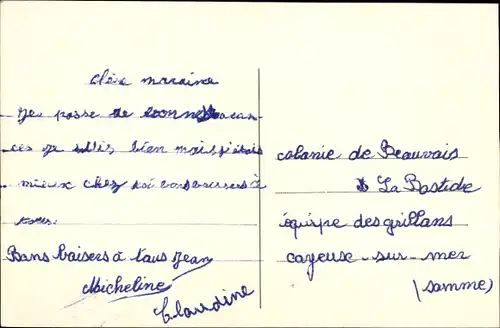 chère maraine
je passe de bonne vacan
ces je suis bien mais j'étais
mieux chez toi bons baisers à
tous.
Bans baisers à taus Jean
Micheline
Claudine
colanie de Beauvais
La Bastide
équipe des grillans
cayeuse-sur-mer
(samme)